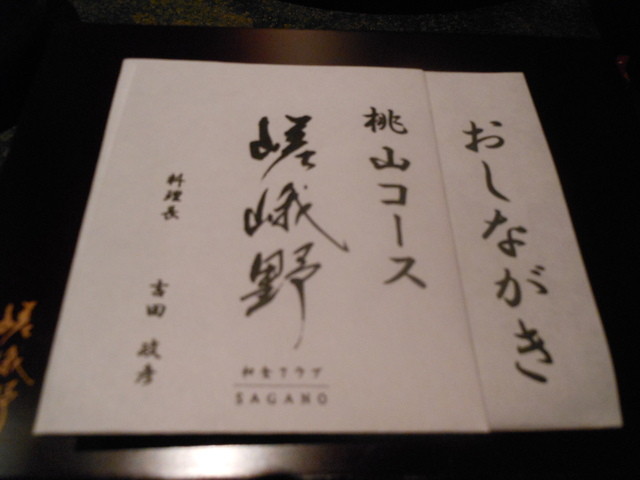 おしながき
桃山コース
嵯峨野
和食クラブ
SAGANO
料理長
吉田
嵯峨野